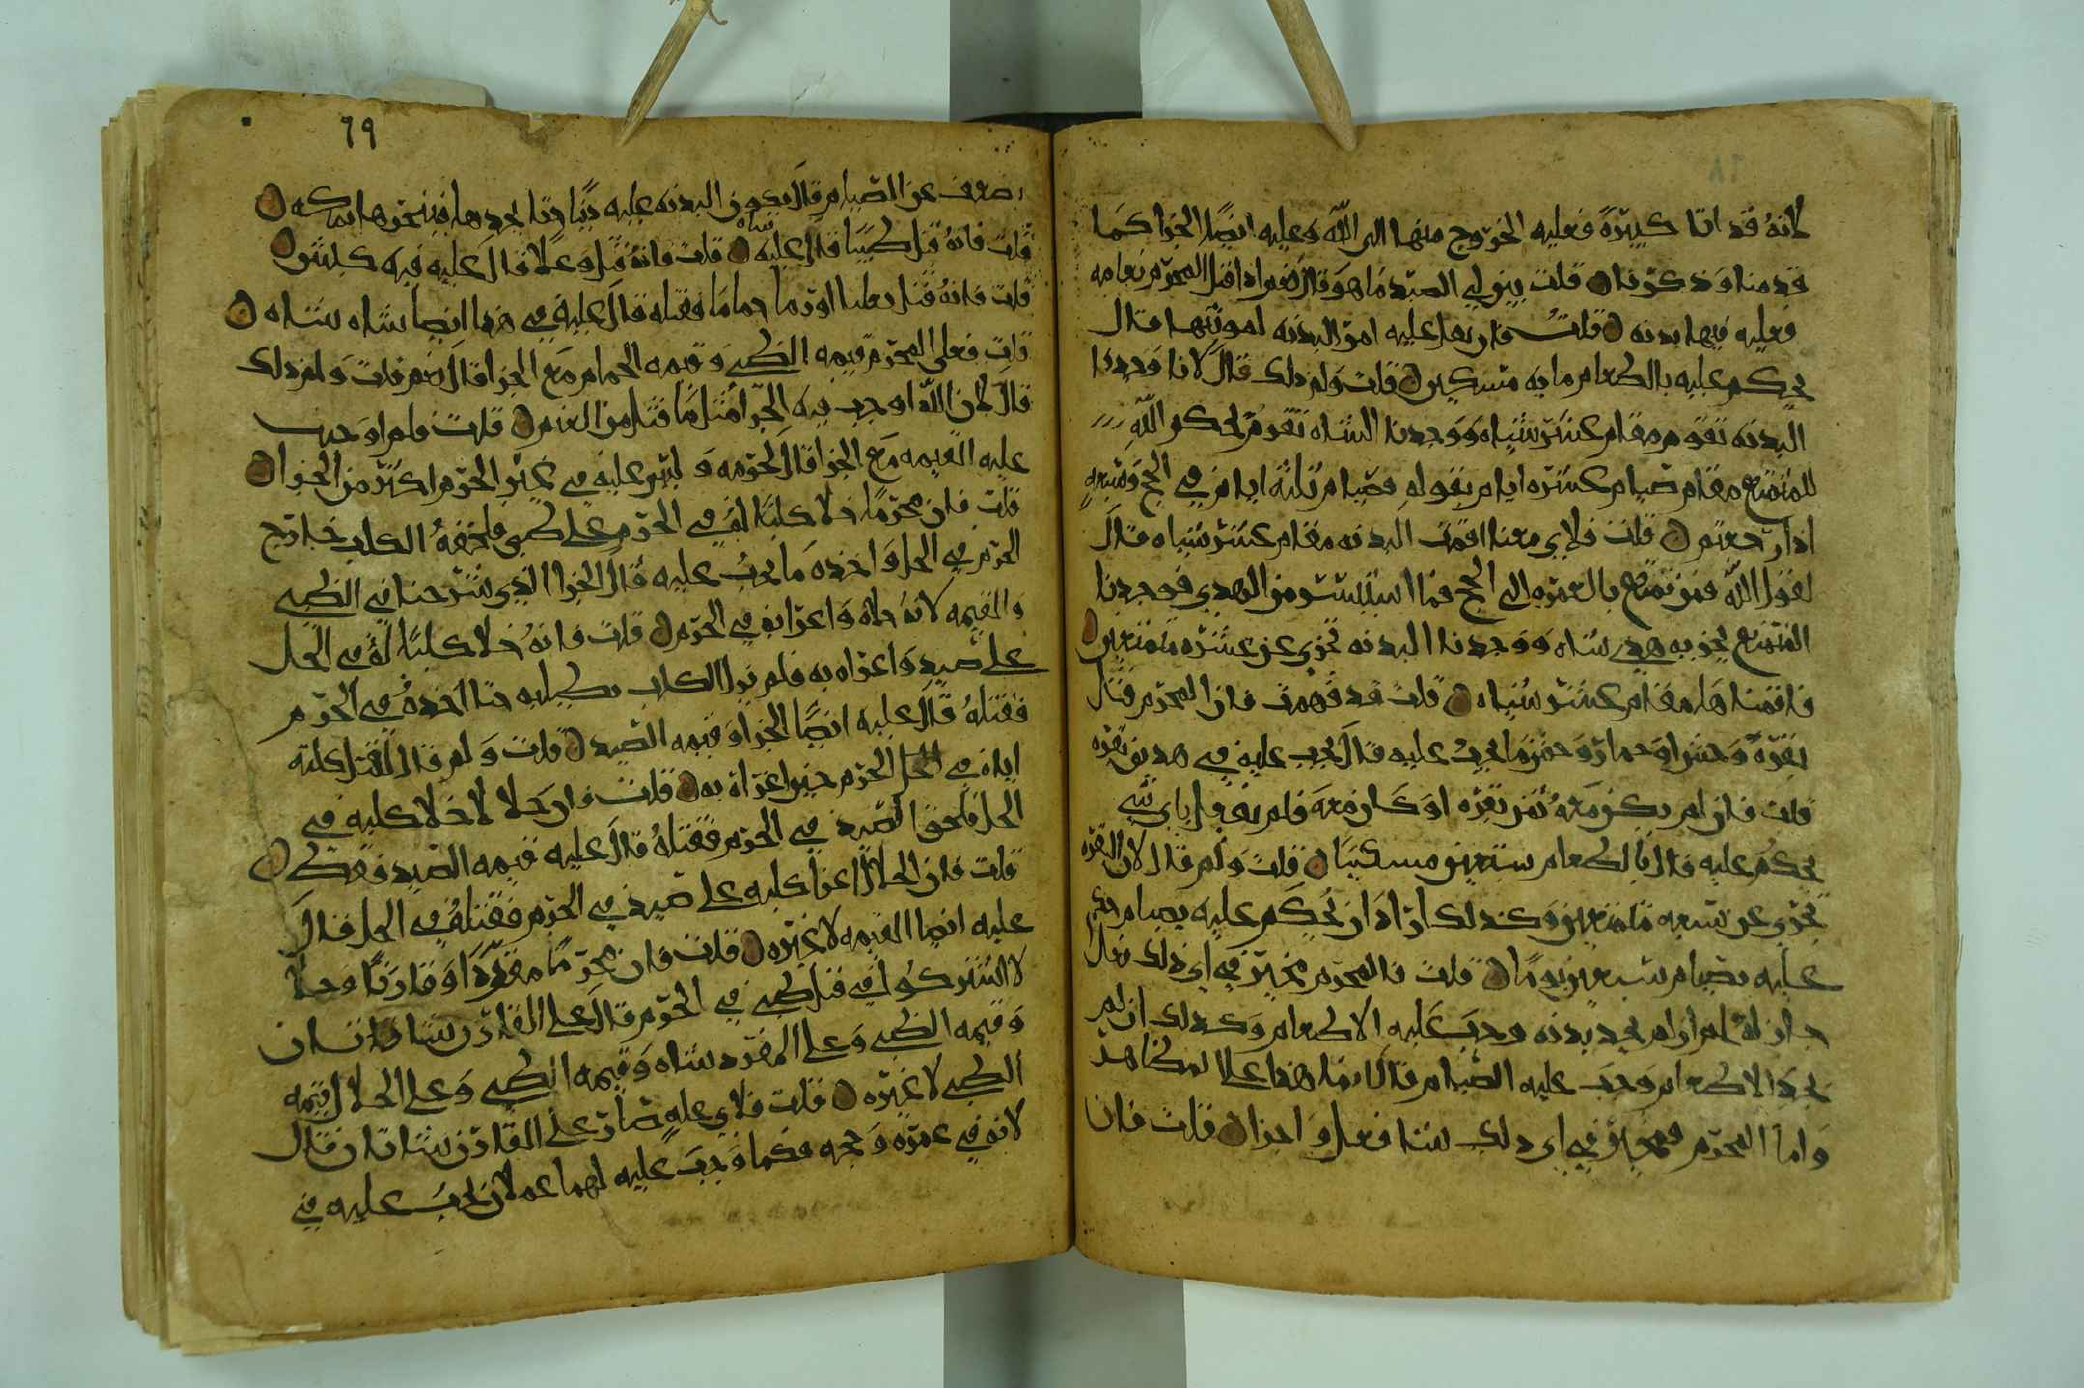 لانه قد اتا كبيرة فعليه الخروج منها الى الله وعليه ايضا الجزا كما
قدمنا وذكرنا قلت بين لي الصيد ما هو قال نعم اذا قتل المحرم نعامه
فعليه فيها بدنه قلت فان بعد عليه امر البدنه لموتها قال
يحكم عليه بالطعام مايه مسكين قلت ولم ذلك قال لانا وجدنا
البدنه تقوم مقام عشر شياه ووجدنا الشاه تقوم لحكم الله
للمتمتع مقام صيام عشره ايام بقوله فصيام ثلثة ايام في الحج وسبعه
اذا رجعتم قلت فلاي معنا اقمت البدنه مقام عشر شياه قال
لقول الله فمن تمتع بالعمره الى الحج فما استيسر من الهدي فوجدنا
المتمتع يجزيه هدي شاه ووجدنا البدنه تجزي عن عشره متمتعين
فاقمناها مقام عشر شياه قلت قد فهمت فان المحرم قتل
بقرة وحش او حمار وحش ما يجب عليه قال يجب عليه في هذين بقره
قلت فان لم يكن معه ثمن بقره او كان معه فلم يفعل باي شي
يحكم عليه قال بالطعام ستعين مسكينا قلت ولم قال لان البقره
تجزي عن سبعه متمتعين وكذلك ان اراد ان يحكم عليه بصيام حكم
عليه بصيام سبعين يوما قلت فالمحرم مخير في اي ذلك فعل
جاز له ام ان لم يجد بدنه وجب عليه الاطعام وكذلك ان لم
يجد الاطعام وجب عليه الصيام قال انما هذا على المظاهر
واما المحرم فمخير في اي ذلك شا فعل واجزا قلت فان
69
ضعف عن الصيام قال يكون البدنه عليه دينا حتا يجدها فينحرها بمكه
قلت فانه قتل ظبيا قال عليه شاه قلت فانه قتل وعلا قال عليه فيه كبش
قلت فانه قتل ثعلبا او رما حماما فقتله قال عليه في هذا ايضا شاه شاه
قلت فعلى المحرم قيمه الظبي وقيمه الحمام مع الجزا قال نعم قلت ولم ذلك
قال لان الله اوجب فيه الجزا مثل ما قتل من النعم قلت فلم اوجبت
عليه القيمه مع الجزا قال لحرمه وليس عليه في غير الحرم اكثر من الجزا
قلت فان محرما خلا كلبا له في الحرم على ظبي فلحقه الكلب خارج
الحرم في الحل واخذه ما يجب عليه قال الجزا الذي شرحنا في الظبي
والقيمه لانه خلاه واغرا به في الحرم قلت فانه خلا كلبا له في الحل
على صيد واغراه به فلم يزل الكلب بطلبه حتا اخذه في الحرم
فقتله قال عليه ايضا الجزا وقيمه الصيد قلت ولم قال لقتل كلبه
اياه في الحرم حين اغراه به قلت فان حلالا خلا كلبه في
الحل فلحق الصيد في الحرم فقتله قال عليه قيمه الصيد فقط
قلت فان الحلال اغرا كلبه على صيد في الحرم فقتله في الحل فقال
عليه ايضا القيمه لا غيره قلت فان محرما مفردا او قارنا وحلا
لا اشتركوا في قتل ظبي في الحرم قال على القارن شاتان
وقيمه الظبي وعلى المفرد شاه وقيمه الظبي وعلى الحلال قيمه
الظبي لا غيره قلت فلاي عله صار على القارن شاتان قال
لانه في عمره وحجه فكما وجب عليه لهما عملان يجب عليه في